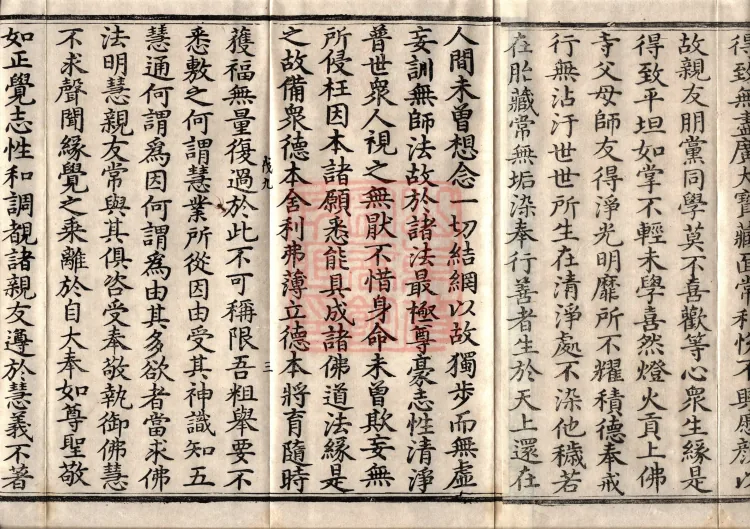 得致無盡廣大寶藏面常和悅不興恚顏以
故親友朋黨同學莫不喜歡等心衆生緣是
得致平坦如掌不輕未學喜然燈火貢上佛
寺父母師友得淨光明靡所不耀積德奉戒
行無沾汙世世所生在清淨處不染他穢若
在胎藏常無垢染奉行善者生於天上還在
人間未曾想念一切結網以故獨步而無虛
妄訓無師法故於諸法最極尊豪志性清淨
普世衆人視之無猒不惜身命未曾欺妄無
所侵枉因本諸願悉能具成諸佛道法緣是
之故備衆德本舍利弗薄立德本將育隨時
戊九 三
獲福無量復過於此不可稱限吾粗舉要不
悉敷之何謂慧業所從因由受其神識知五
慧通何謂爲因何謂爲由其多欲者當求佛
法明慧親友常與其俱咨受奉敬執御佛慧
不求聲聞緣覺之乘離於自大奉如尊聖敬
如正覺志性和調覩諸親友遵於慧義不著